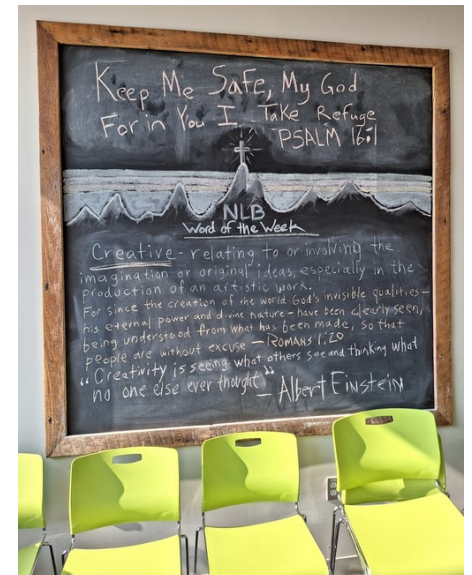 Keep Me Safe, My God
For in You I Take Refuge
PSALM 16:1
NLB
Word of the Week
Creative - relating to or involving the
imagination or original ideas, especially in the
production of an artistic work.
For since the creation of the world God's invisible qualities -
his eternal power and divine nature - have been clearly seen,
being understood from what has been made, so that
people are without excuse - ROMANS 1:20
"Creativity is seeing what others see and thinking what
no one else ever thought" - Albert EinsteiN